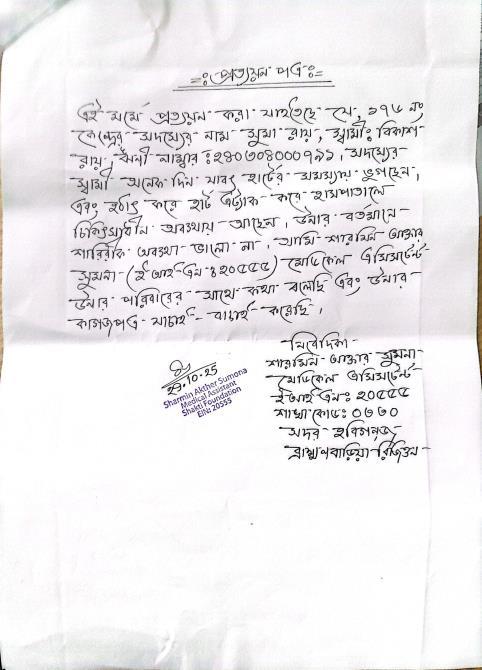 -ঃ প্রত্যয়ন পত্র ঃ-
এই মর্মে প্রত্যয়ন করা যাইতেছে যে, ১৭৬ নং
কেন্দ্রের সদস্যের নাম সুমা রায়, স্বামীঃ বিকাশ
রায়, ঋনী নাম্বার ঃ ২৪০৩০৪০০০৭৯১, সদস্যের
স্বামী অনেক দিন যাবৎ হার্টের সমস্যায় ভুগছেন,
এবং হঠাৎ করে হার্ট এট্যাক করে হাসপাতালে
চিকিৎসাধীন অবস্থায় আছেন, উনার বর্তমানে
শারিরীক অবস্থা ভালো না, আমি শারমিন আক্তার
সুমনা (ই আই এন ঃ ২০৫৫৫) মেডিকেল এসিসটেন্ট
উনার পরিবারের সাথে কথা বলেছি এবং উনার
কাগজপত্র যাচাই-বাচাই করেছি।
নিবেদিকা
শারমিন আক্তার সুমনা
মেডিকেল এসিসটেন্ট
ই আই এনঃ ২০৫৫৫
শাখা কোডঃ ০৩৩০
সদর হবিগঞ্জ
ব্রাহ্মণবাড়িয়া রিজিওন
29.10.25
Sharmin Akther Sumona
Medical Assistant
Shakti Foundation
EIN: 20555